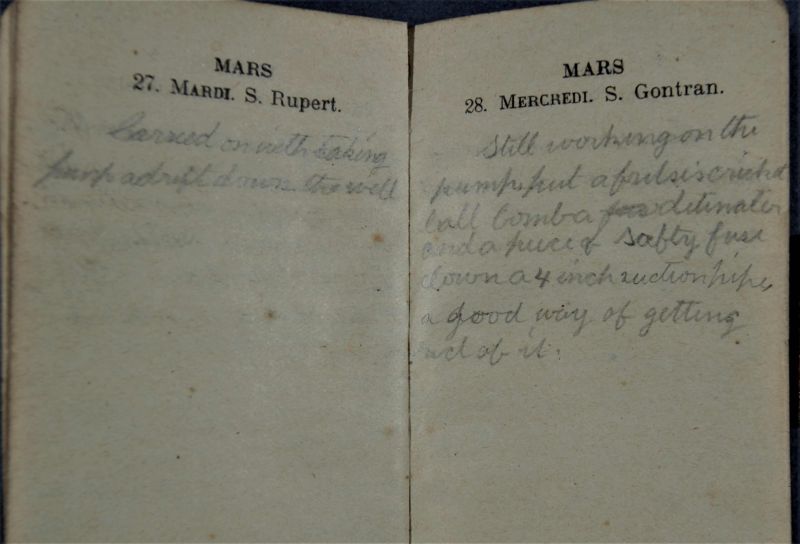 MARS
27. MARDI. S. Rupert.
Carried on with taking
pump adrift down the well
MARS
28. MERCREDI. S. Gontran.
Still working on the
pump, put a
ball bomb a detinater
and a piece of safty fuse
down a 4 inch suction pipe,
a good way of getting
rid of it.